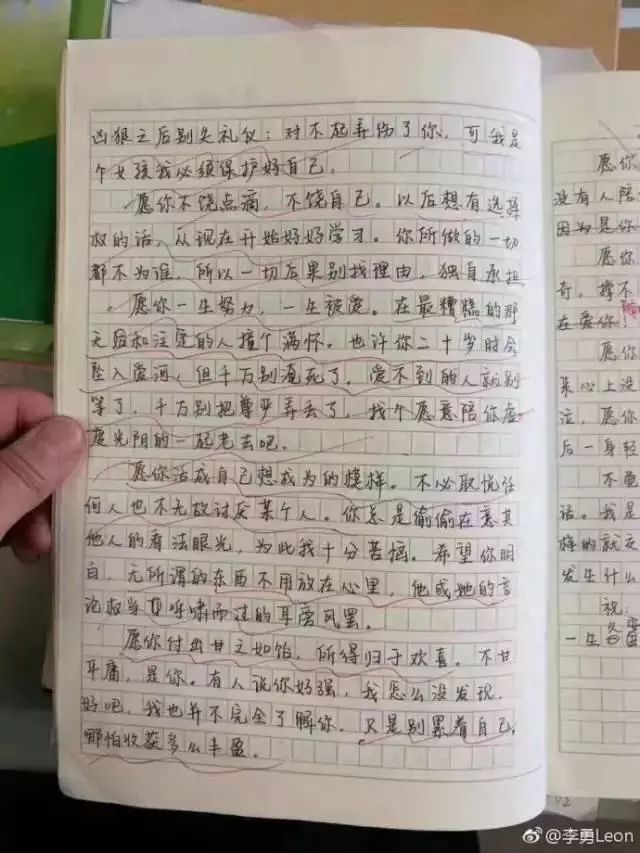 凶狠之后别失礼仪：对不起弄伤了你，可我是
个女孩我必须保护好自己。
愿你不饶点病，不饶自己。以后想有选择
权的话，从现在开始好好学习。你所做的一切
都不为谁，所以一切后果别找理由，独自承担
愿你一生努力，一生被爱。在最糟糕的那
天迎和注定的人撞个满怀。也许你二十岁时会
坠入爱河，但千万别淹死了，爱不到的人就别
等了，千万别把尊严弄丢了，找个愿意陪你虚
度光阴的一起老去吧。
愿你活成自己想成为的模样。不必取悦任
何人也不无故讨厌某个人。你总是偷偷在意其
他人的看法眼光，为此我十分苦恼。希望你明
白，无所谓的东西不用放在心里，他或她的言
论权当呼啸而过的耳旁风罢。
愿你付出甘之如饴，所得归于欢喜。不甘
平庸，是你。有人说你好强，我怎么没发现，
好吧，我也并不完全了解你，只是别累着自己，
哪怕收获多么丰盈。
愿你
没有人陪
因为是你
愿你
奇，撑不
在爱你！
愿你
来心上没
泣，愿你
后一身轻
不重
话。我是
择的就交
发生什么
祝：
一生
@李勇Leon